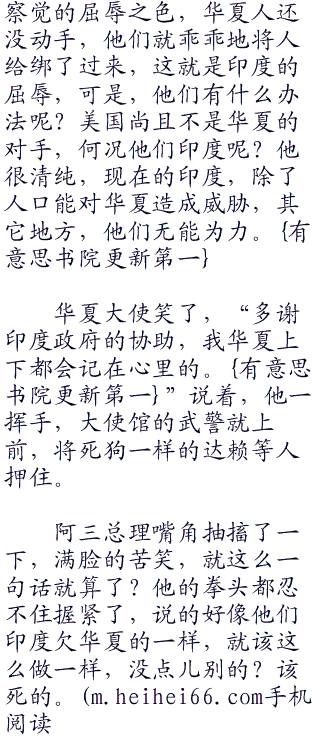 察觉的屈辱之色，华夏人还
没动手，他们就乖乖地将人
给绑了过来，这就是印度的
屈辱，可是，他们有什么办
法呢？美国尚且不是华夏的
对手，何况他们印度呢？他
很清纯，现在的印度，除了
人口能对华夏造成威胁，其
它地方，他们无能为力。{有
意思书院更新第一}
华夏大使笑了，“多谢
印度政府的协助，我华夏上
下都会记在心里的。{有意思
书院更新第一}”说着，他一
挥手，大使馆的武警就上
前，将死狗一样的达赖等人
押住。
阿三总理嘴角抽搐了一
下，满脸的苦笑，就这么一
句话就算了？他的拳头都忍
不住握紧了，说的好像他们
印度欠华夏的一样，就该这
么做一样，没点儿别的？该
死的。(m.heihei66.com手机
阅读